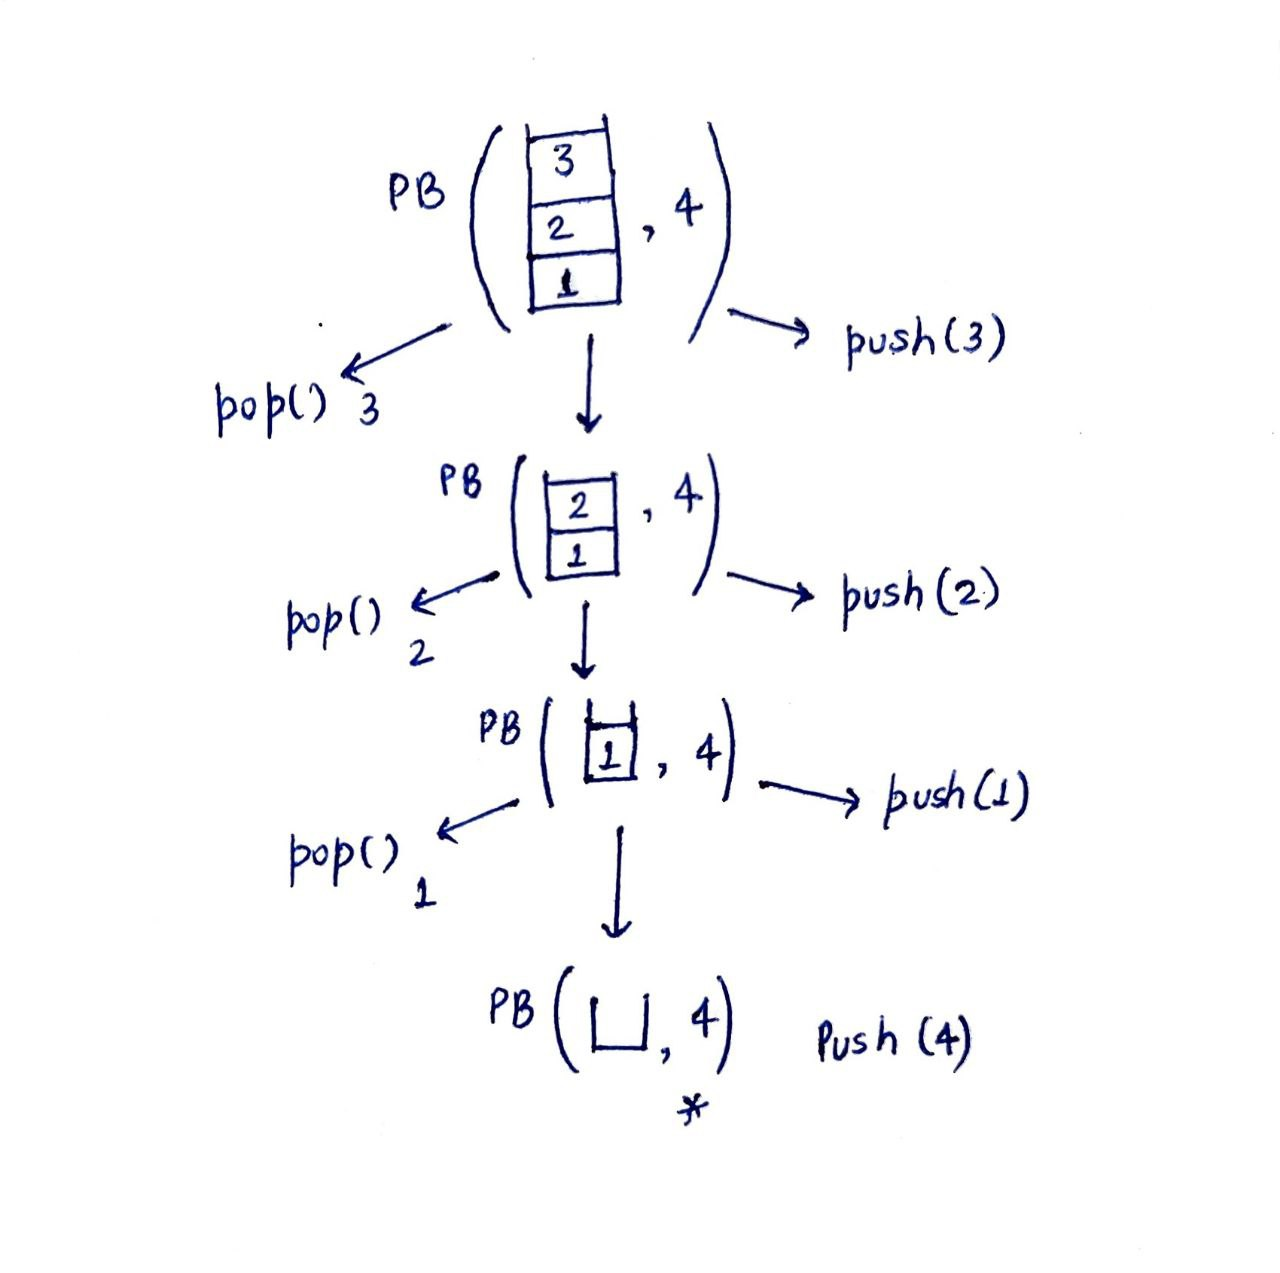 PB ( 3 , 4 )
2
1
pop() 3
push(3)
PB ( 2 , 4 )
1
pop() 2
push(2)
PB ( 1 , 4 )
pop() 1
push(1)
PB ( , 4 ) Push (4)
*